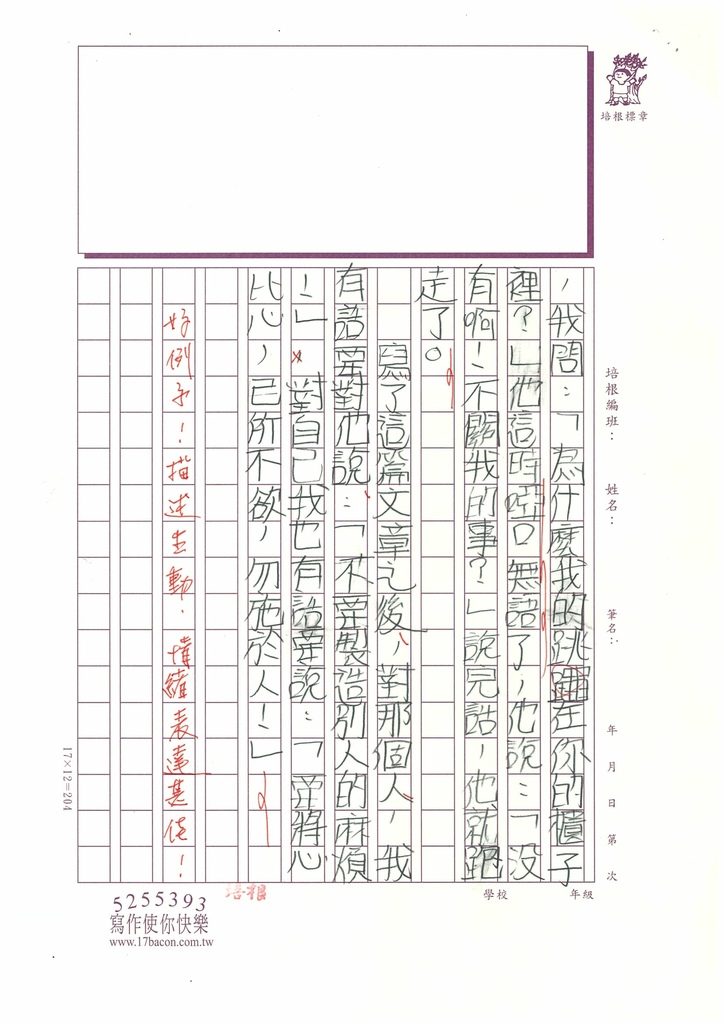 培根標章
培根編班：
姓名：
筆名：
年 月 日 第 次
，我問：「為什麼我的跳繩在你的櫃子
裡？」他這時啞口無語了，他說：「沒
有啊！不關我的事？」說完話，他就跑
走了。
寫了這篇文章之後，對那個人，我
有話要對他說：「不要製造別人的麻煩
！」對自己我也有話要說：「要將心
比心，己所不欲，勿施於人！」
好例子！描述生動．情緒表達甚佳！
17×12=204
年級
學校
培根
5255393
寫作使你快樂
www.17bacon.com.tw